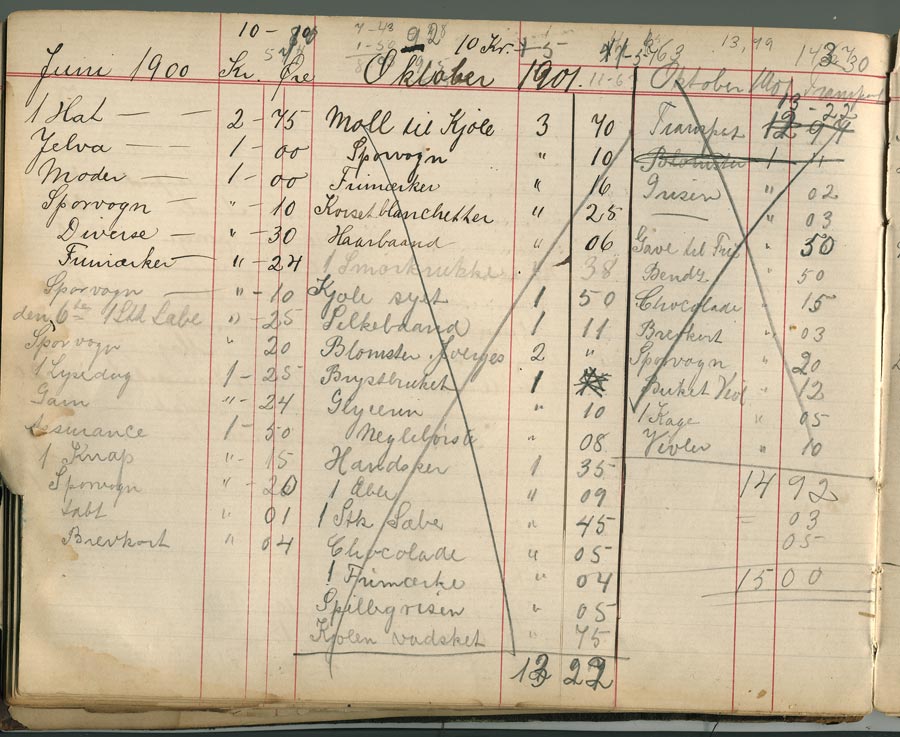 Juni 1900 Kr. Øre
1 Hat — — 2 - 75
Jelva — — 1 - 00
Moder — 1 - 00
Sporvogn — " - 10
Diverse — " - 30
Frimærker " - 24
Sporvogn — " - 10
den 6te 1 Stk Sabe " - 25
Sporvogn " 20
1 Lysedug 1 - 25
Garn " - 24
Assurance 1 - 50
1 Knap " - 15
Sporvogn " - 20
tabt " 01
Brevkort " 04
10 Kr.
Oktober 1901.
Moll til Kjole 3 70
Sporvogn " 10
Frimærker " 16
Korsetblanchetter " 25
Haarbaand " 06
1 Smørkrukke " 38
Kjole syet 1 50
Silkebaand 1 11
Blomster Sverges 2 "
Brystbuket 1
Glycerin " 10
Neglebørste " 08
Handsker 1 35
1 Æble " 09
1 Stk Sæbe " 45
Chocolade " 05
1 Frimærke " 04
Spillegrisen " 05
Kjolen vadsket " 75
13 22
Oktober
Transport
13 - 22
Transport 12 97
Blomster 1 "
Grisen " 02
— " 03
Gave til " 50
Bendz " 50
Chocolade " 15
Brevkort " 03
Sporvogn " 20
Buket Viol " 12
1 Kage " 05
Violer " 10
14 92
= 03
05
15 00